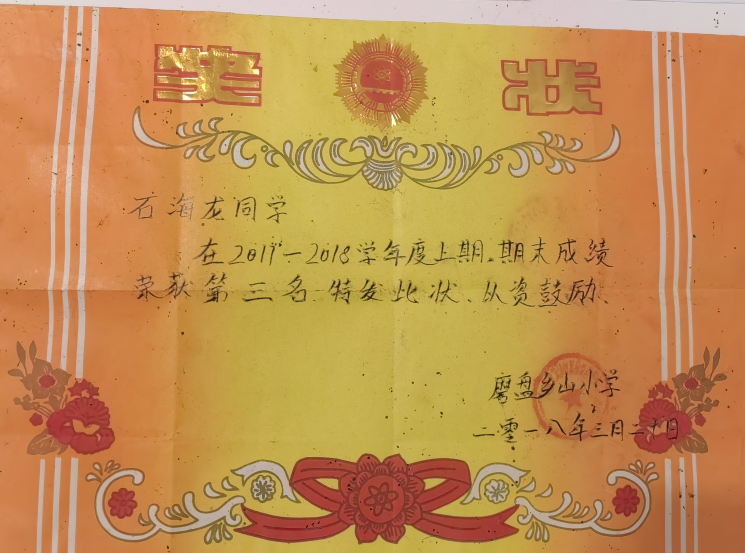 奖状
石海龙同学
在2017-2018学年度上期.期末成绩
荣获第三名.特发比状、从资鼓励、
磨盘乡山小学
二零一八年三月二十日